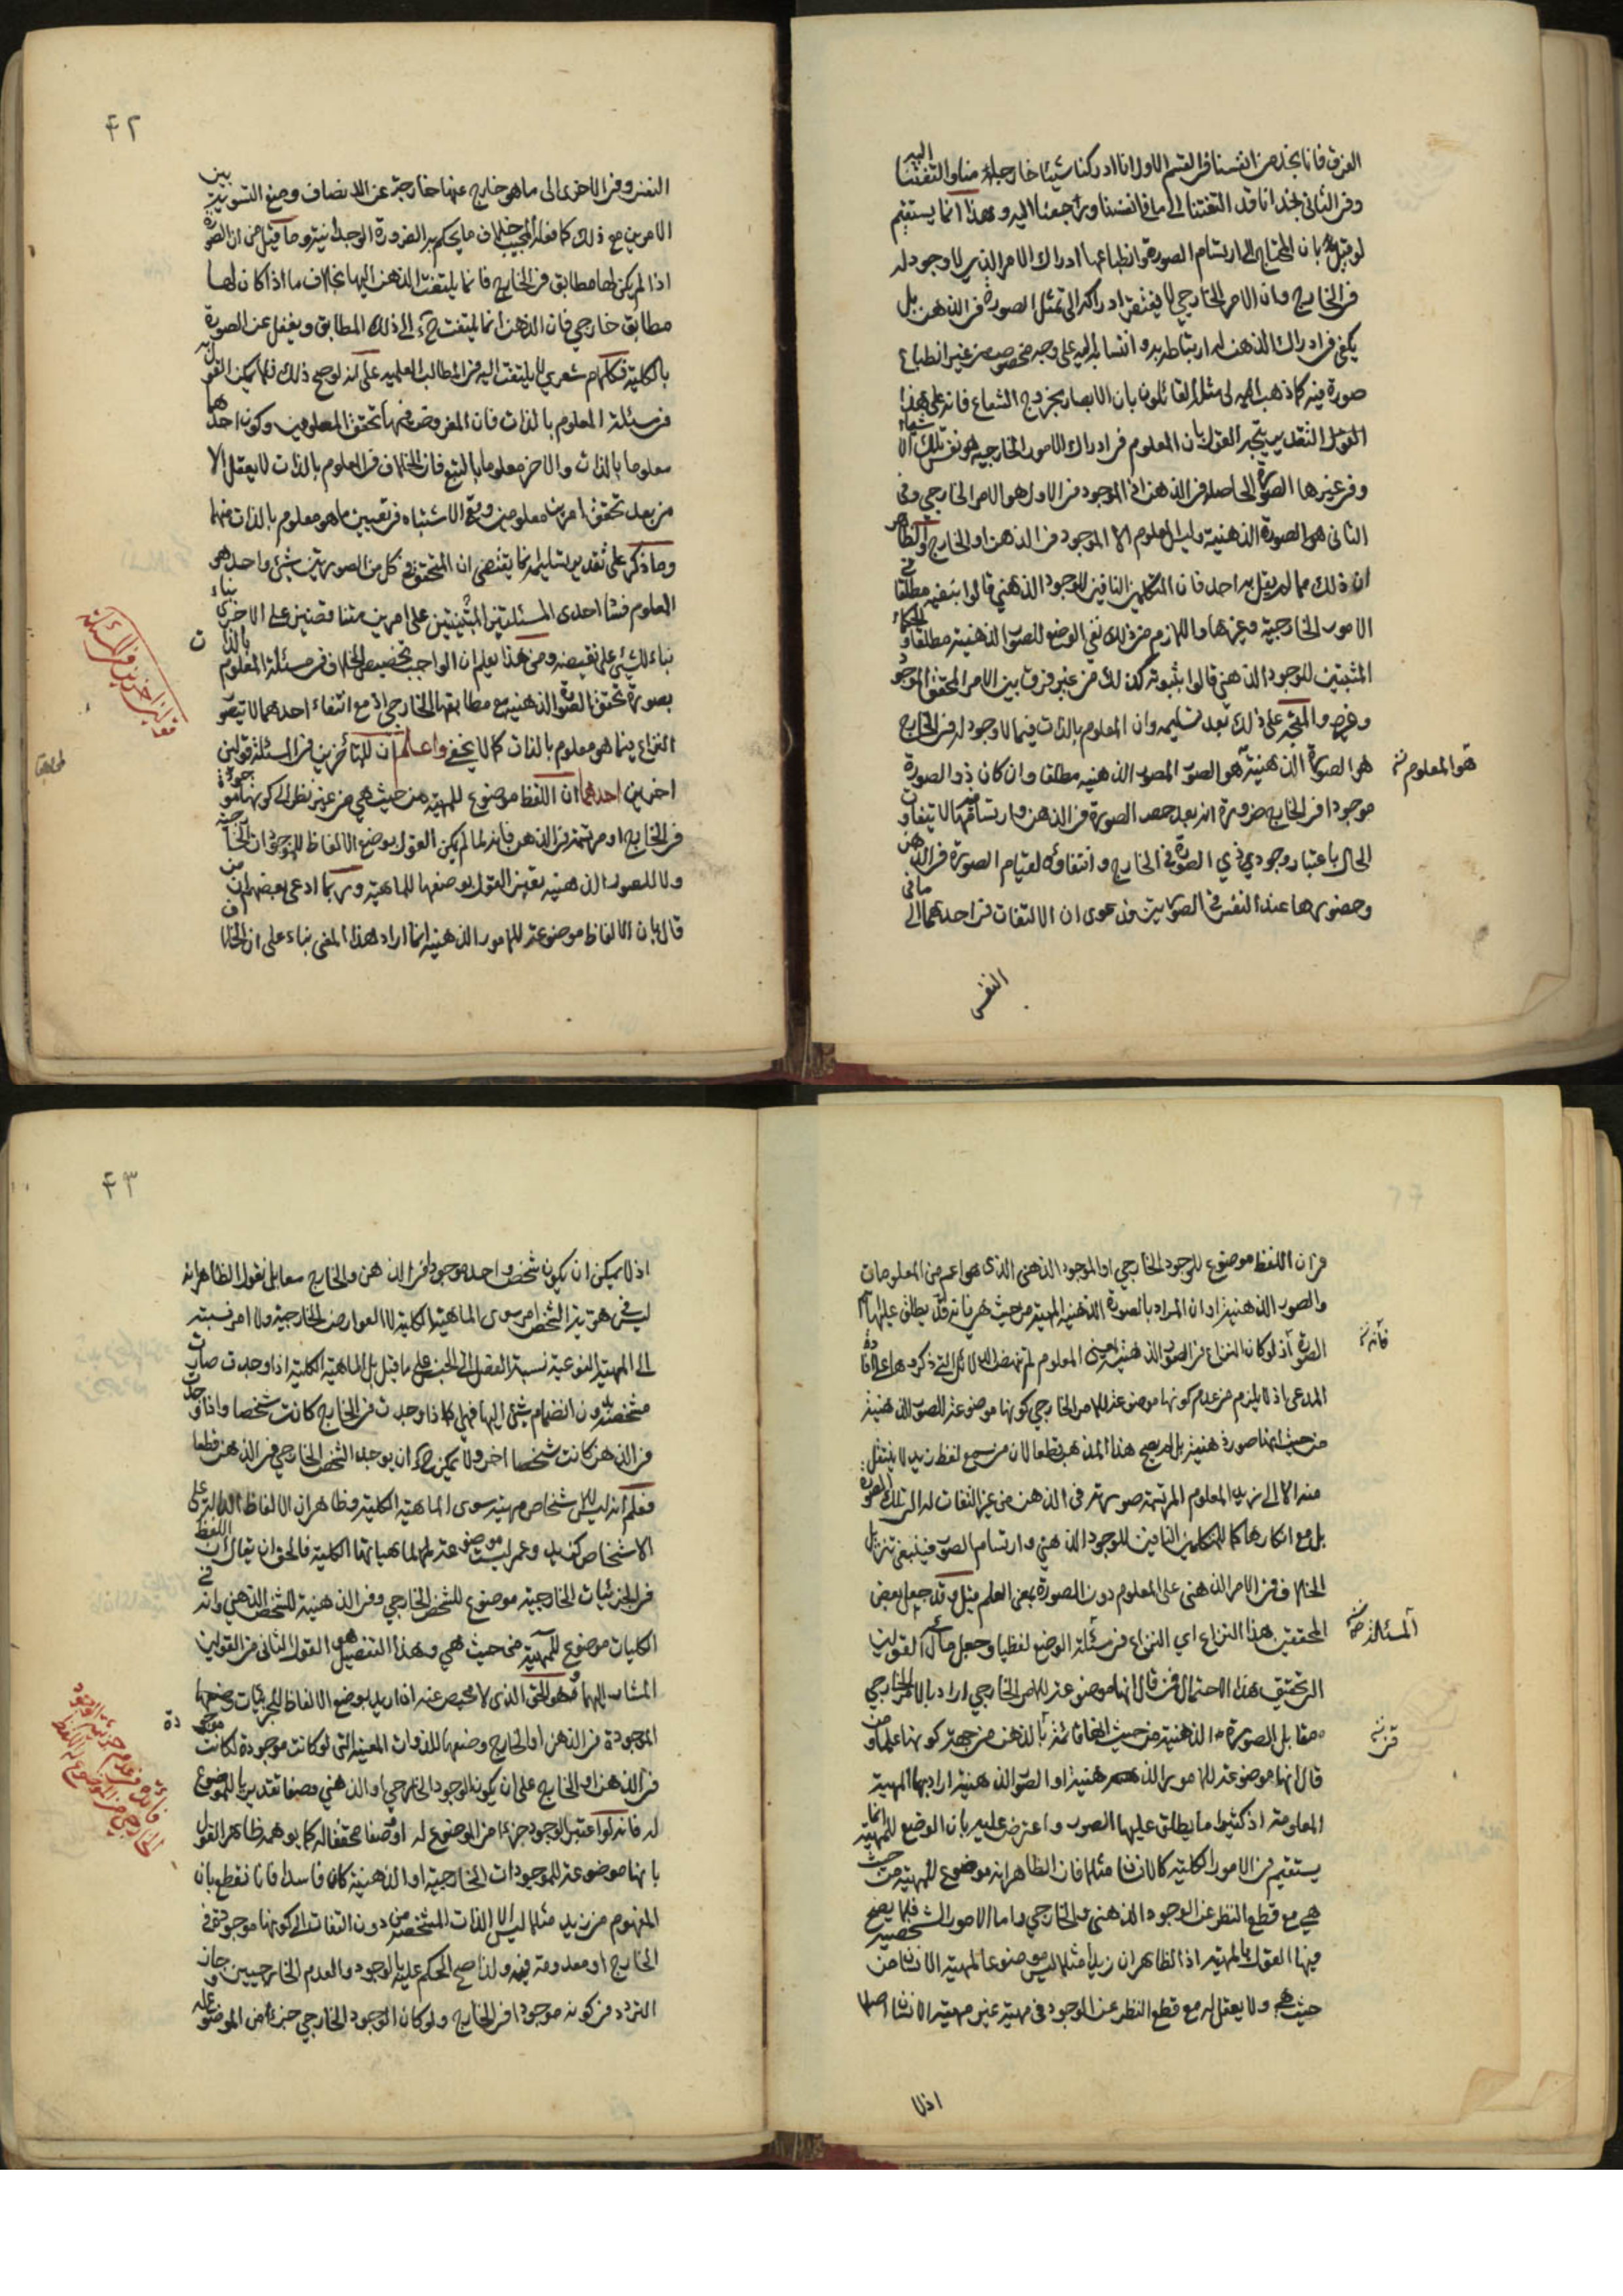 الفرق فانا نجد من انفسنا في القسم الاول انا ادركنا شيئا خارجا منا والتفتنا اليه
وفي الثاني نجد انا قد التفتنا الى ما في انفسنا وراجعنا اليه وهذا انما يستقيم
لو قيل بان المحتاج الى ارتسام الصورة وانطباعها ادراك الامر الذي لا وجود له
في الخارج وان الامر الخارجي لا يفتقر ادراكه الى تمثل الصورة في الذهن بل
يكفي في ادراك الذهن له ارتباطه به وانتسابه اليه على وجه مخصوص من غير انطباع
صورة فيه كما ذهب اليه القائلون بان الابصار بخروج الشعاع فانه على هذا
التقدير يتجه القول بان المعلوم في ادراك الامور الخارجية هو نفس تلك الاشياء
وفي غيرها الصورة الحاصلة في الذهن اذ الموجود في الاول هو الامر الخارجي وفي
الثاني هو الصورة الذهنية وليس المعلوم الا الموجود في الذهن او الخارج والظاهر
ان ذلك مما لم يقل به احد فان المتكلمين النافين للوجود الذهني قالوا بنفيه مطلقا في
الامور الخارجية وغيرها واللازم من ذلك نفي الوضع للصور الذهنية مطلقا والحكماء
المثبتين للوجود الذهني قالوا بثبوته كذلك من غير فرق بين الامر المحقق الموجود
وغيره والمتجه على ذلك بعد تسليمه وان المعلوم بالذات فيما لا وجود له في الخارج
هو الصورة الذهنية هو الصور الذهنية مطلقا وان كان ذو الصورة
هو المعلوم
موجودا في الخارج ضرورة انه بعد حصر الصورة في الذهن وارتسامها لا يتفاوت
الحال باعتبار وجود ذي الصورة في الخارج وانتفاؤه لقيام الصورة في الذهن
وحضورها عند النفس في الصورتين ودعوى ان الالتفات في احدهما الى ما في
النفس
٤٢
النفس وفي الاخرى الى ما هو خارج عنها خارجة عن الانصاف ومنع التسوية بين
الامرين مع ذلك كما فعله المجيب خلاف ما يحكم به الضرورة الوجدانية وما قيل من ان الصورة
اذا لم يكن لها مطابق في الخارج فانما يلتفت الذهن اليها بخلاف ما اذا كان لها
مطابق خارجي فان الذهن انما يلتفت ح الى ذلك المطابق ويغفل عن الصورة
بالكلية فكلام شعري لا يلتفت اليه في المطالب العلمية على انه لو صح ذلك فلا يمكن القول به
في مسئلة المعلوم بالذات فان المفروض فيها تحقق المعلومين وكون احدهما
معلوما بالذات والاخر معلوما بالتبع فان الخلاف في المعلوم بالذات لا يعقل الا
من بعد تحقق امرين معلومين ويقع الاشتباه في تعيين ما هو معلوم بالذات منهما
وما ذكر على تقدير تسليمه انما يقتضي ان المتحقق في كل من الصورتين شيئ واحد هو
المعلوم فبناء احدى المسئلتين المبتنيتين على امرين متناقضين على الاخرى بناء
بناء للشيئ على نقيضه ومن هذا يعلم ان الواجب تخصيص الخلاف في مسئلة المعلوم بالذات
بصورة تحقق الصورة الذهنية مع مطابقها الخارجي اذ مع انتفاء احدهما لا يتصور
النزاع فيما هو معلوم بالذات كما لا يخفى واعلم ان للمتأخرين في المسئلة قولين
اخرين احدهما ان اللفظ موضوع للمهية من حيث هي من غير نظر الى كونها موجودة
في الخارج او مرتسمة في الذهن فانه لما لم يكن القول بوضع الالفاظ للموجودات الخارجية
ولا للصور الذهنية تعين القول بوضعها للماهية وربما ادعى بعضهم ان من
قال بان الالفاظ موضوعة للامور الذهنية انما اراد هذا المعنى بناء على ان الخلاف
في ان اللفظ موضوع للموجود الخارجي او الموجود الذهني الذي هو اعم من المعلومات
والصور الذهنية او ان المراد بالصورة الذهنية المهية من حيث هي فانه قد يطلق عليها اسم
الصورة اذ لو كان النزاع في الصور الذهنية بمعنى المعلوم لم تنهض الدلائل التي ذكروها على افادة
فانه
المدعى اذ لا يلزم من عدم كونها موضوعة للامر الخارجي كونها موضوعة للصور الذهنية
من حيث انها صورة ذهنية بل لم يصح هذا المذهب قطعا لان من سمع لفظ زيد لا ينتقل
منه الا الى زيد المعلوم المرتسمة صورته في الذهن من غير التفات له الى تلك الصورة
بل مع انكارها كما للمتكلمين النافين للوجود الذهني وارتسام الصور فينبغي تنزيل
الخلاف في الامر الذهني على المعلوم دون الصورة بمعنى العلم قيل وقد جعل بعض
المحققين هذا النزاع اي النزاع في مسئلة الوضع لفظيا وجعل مآل القولين
المسئلة
الى تحقيق هذا الاحتمال فمن قال انها موضوعة للامر الخارجي اراد بالامر الخارجي
مقابل الصورة الذهنية من حيث انها قائمة بالذهن من جهة كونها علما ومن
قال انها موضوعة للامور الذهنية او الصور الذهنية اراد بها المهية
المعلومة اذ كثيرا ما يطلق عليها الصور واعترض عليه بان الوضع للمهية انما
يستقيم في الامور الكلية كالانسان مثلا فان الظاهر انه موضوع للمهية من حيث
هي مع قطع النظر عن الوجود الذهني والخارجي واما الامور الشخصية فلا يصح
فيها القول بالمهية اذ الظاهر ان زيدا مثلا ليس موضوعا لمهية الانسان من
حيث هي ولا يعقل له مع قطع النظر عن الوجود في مهية غير مهية الانسان اصلا
اذ لا
٤٣
اذ لا يمكن ان يكون شخص واحد موجودا في الذهن والخارج معا بل نقول الظاهر انه
ليس في هوية الشخص امر سوى الماهية الكلية لا العوارض الخارجية ولا امر نسبته
الى المهية النوعية نسبة الفصل الى الجنس على ما قيل بل الماهية الكلية اذا وجدت صارت
متشخصة بدون انضمام شيئ اليها فهي اذا وجدت في الخارج كانت شخصا واذا وجدت
في الذهن كانت شخصا اخر ولا يمكن ح ان يوجد الشخص الخارجي في الذهن قطعا
فعلم انه ليس للاشخاص مهية سوى الماهية الكلية وظاهر ان الالفاظ الدالة على
الاشخاص كزيد وعمر ليست موضوعة لها لماهياتها الكلية فالحق ان يقال ان اللفظ
في الجزئيات الخارجية موضوع للشخص الخارجي وفي الذهنية للشخص الذهني وانه في
الكليات موضوع للمهية من حيث هي وهذا التفصيل هو القول الثاني من القولين
المشار اليهما وهو الحق الذي لا محيص عنه اذا اريد بوضع الالفاظ للجزئيات وضعها
الموجودة في الذهن او الخارج وضعها للذوات المعينة التي لو كانت موجودة لكانت موجودة
في الذهن او الخارج على ان يكون الوجود الخارجي او الذهني وصفا تقديريا للموضوع
له فانه لو اعتبر الوجود جزءا من الموضوع له او وصفا محققا له كما يوهمه ظاهر القول
بانها موضوعة للموجودات الخارجية او الذهنية كان فاسدا فانا نقطع بان
المفهوم من زيد مثلا ليس الا الذات المشخصة من دون التفات الى كونها موجودة في
الخارج او معدومة فيه ولذا صح الحكم عليه بالوجود والعدم الخارجيين وجاز
التردد في كونه موجودا في الخارج ولو كان الوجود الخارجي جزءا من الموضوع له